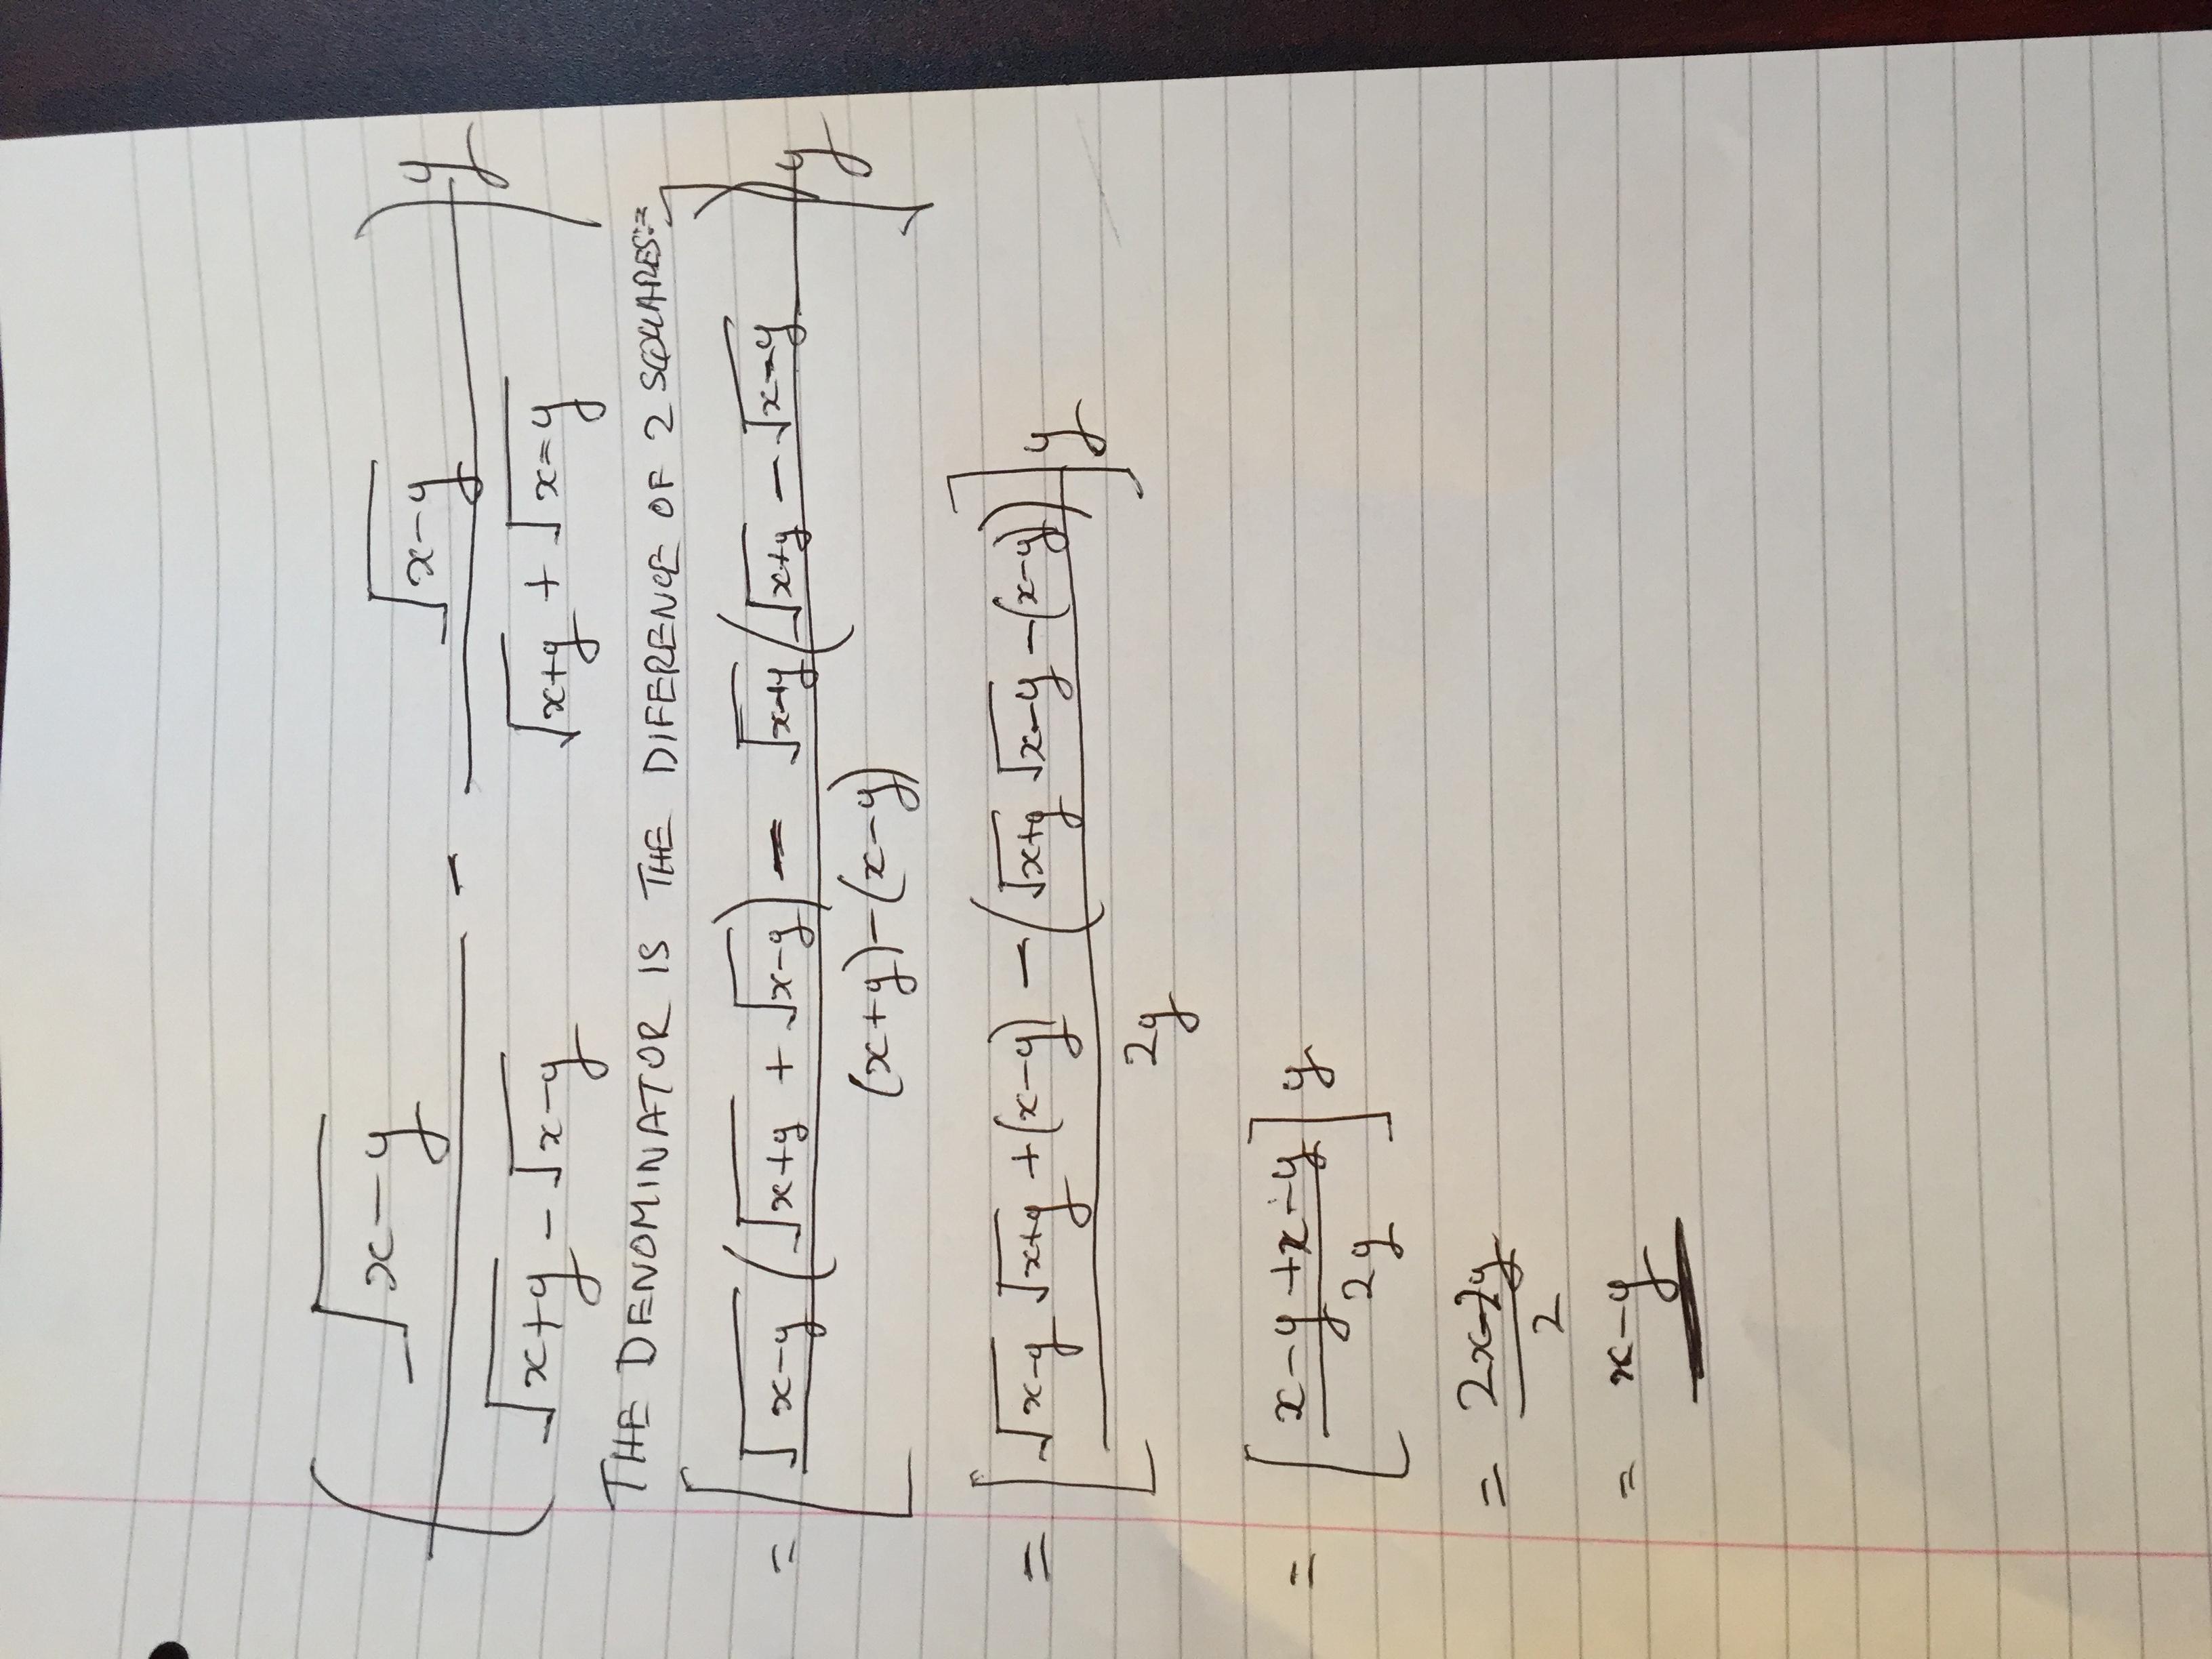 ( √x-y / √x+y - √x-y - √x-y / √x+y + √x=y ) y
THE DENOMINATOR IS THE DIFFERENCE OF 2 SQUARES:=
= [ √x-y ( √x+y + √x-y ) - √x+y ( √x+y - √x-y ) / (x+y)-(x-y) ] y
= [ √x-y √x+y + (x-y) - ( √x+y √x-y - (x-y) ) / 2y ] y
= [ x-y+x-y / 2y ] y
= 2x-2y / 2
= x-y